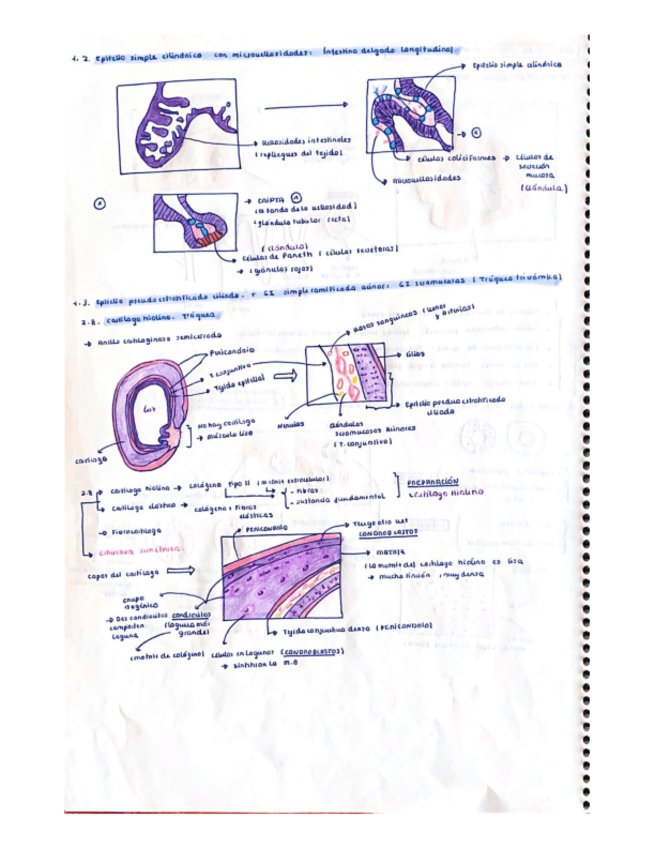 1.2. Epitelio simple cilíndrico con microvellosidades: Intestino delgado longitudinal
Epitelio simple cilíndrico
Vellosidades intestinales
(repliegues del tejido)
células caliciformes → células de
secreción
mucosa
(Glándula)
microvellosidades
→ CRIPTA
(al fondo de la vellosidad)
glándula tubular recta)
(Glándula)
células de Paneth (células secretoras)
→ (gránulos rojos)
1.3. Epitelio pseudoestratificado ciliado. + GE simple ramificada acinar: GE submucosas (Tráquea tricrómica)
2.8. cartílago hialino. Tráquea
→ Anillo cartilaginoso semicerrado
Pericondrio
T. conjuntivo
Tejido epitelial
Luz
No hay cartílago
→ músculo liso
cartílago
Vasos sanguíneos (Venas
y Arterias)
cilios
Epitelio pseudoestratificado
ciliado
Nervios
Glándulas
submucosas acinares
(T. conjuntivo)
2.8 → cartílago hialino → colágeno tipo II (matriz extracelular)
- Fibras
- sustancia fundamental
PREPARACIÓN
cartílago hialino
→ cartílago elástico → colágeno: Fibras
elásticas
→ Fibrocartílago
→ Estructura
capas del cartílago
PERICONDRIO
CONDROBLASTOS)
→ matriz
(La matriz del cartílago hialino es lisa
→ mucha tinción, muy densa
Grupo
isogénico
→ Dos condrocitos
comparten
laguna
condrocitos
(laguna más
grande)
Tejido conjuntivo denso (PERICONDRIO)
(matriz de colágeno) células en lagunas (CONDROBLASTOS)
→ sintetizan la M.E